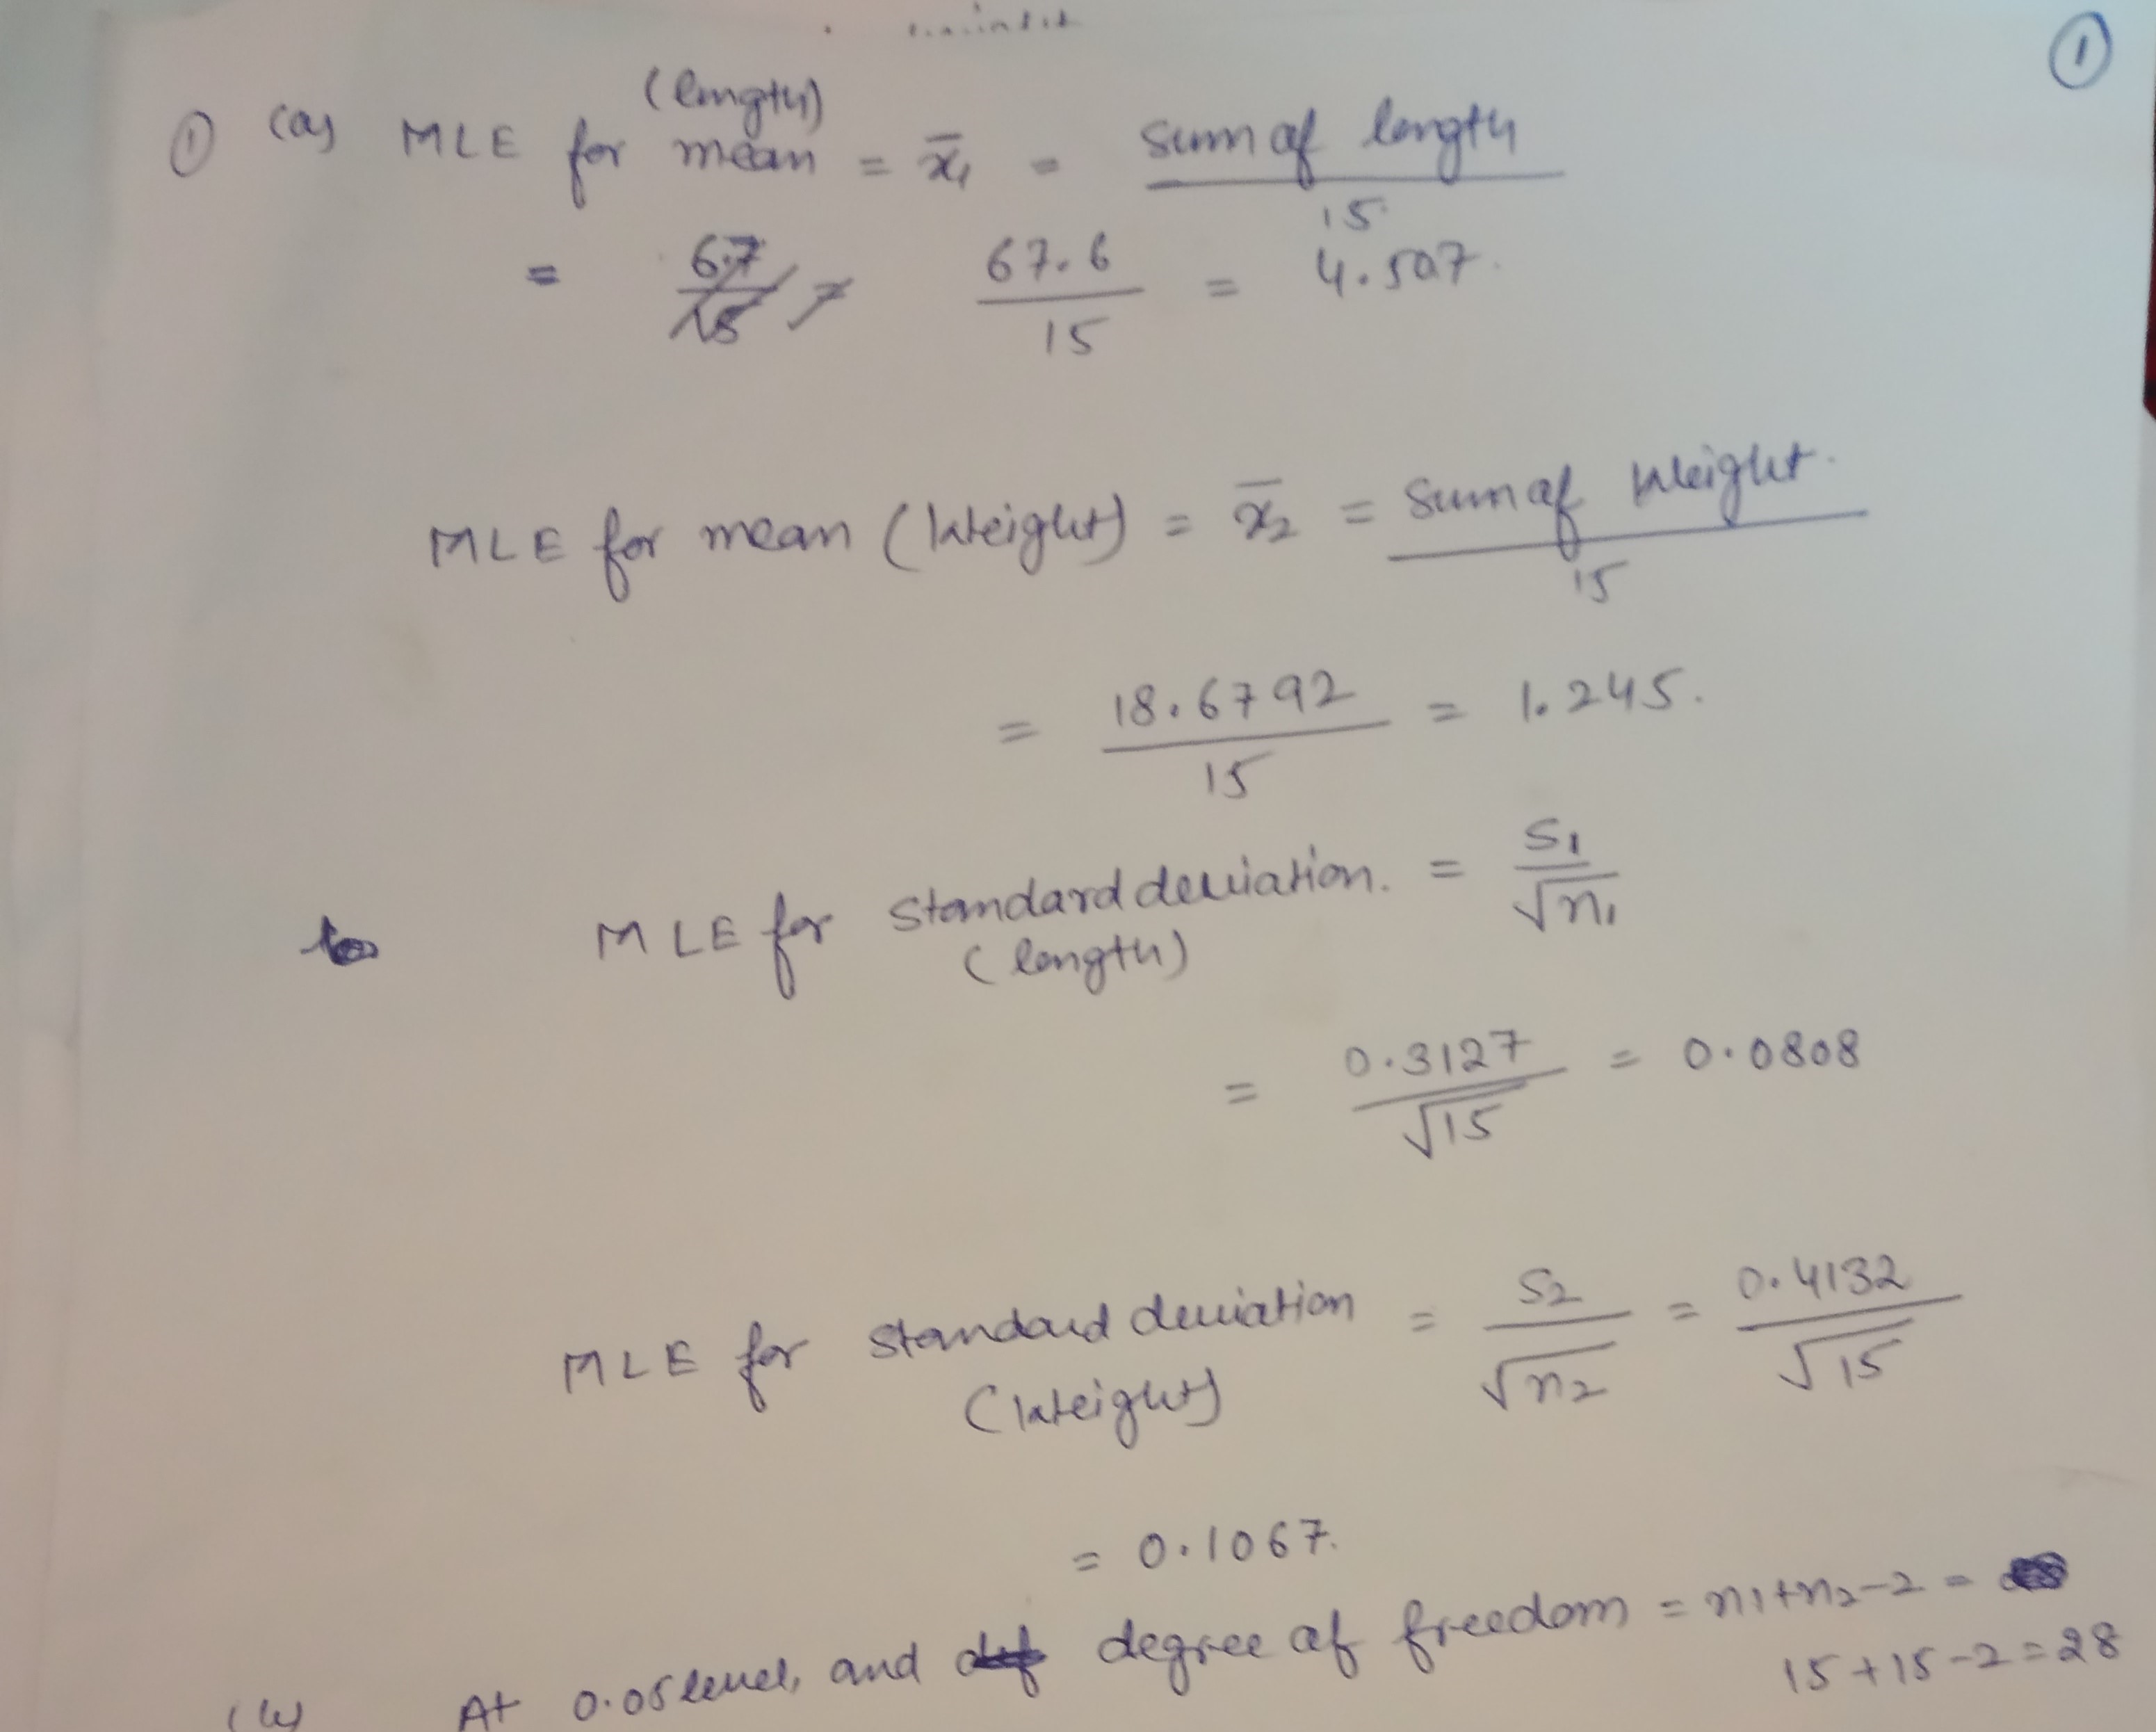 ①
① (a) MLE for mean (length) = x̄₁ = sum of length / 15
= 67.6 / 15 = 4.507.
MLE for mean (Weight) = x̄₂ = Sum of Weight. / 15
= 18.6792 / 15 = 1.245.
MLE for Standard deviation. (length) = S₁ / √n₁
= 0.3127 / √15 = 0.0808
MLE for Standard deviation (Weight) = S₂ / √n₂ = 0.4132 / √15
= 0.1067.
At 0.05 level, and degree of freedom = n₁+n₂-2 =
15+15-2=28